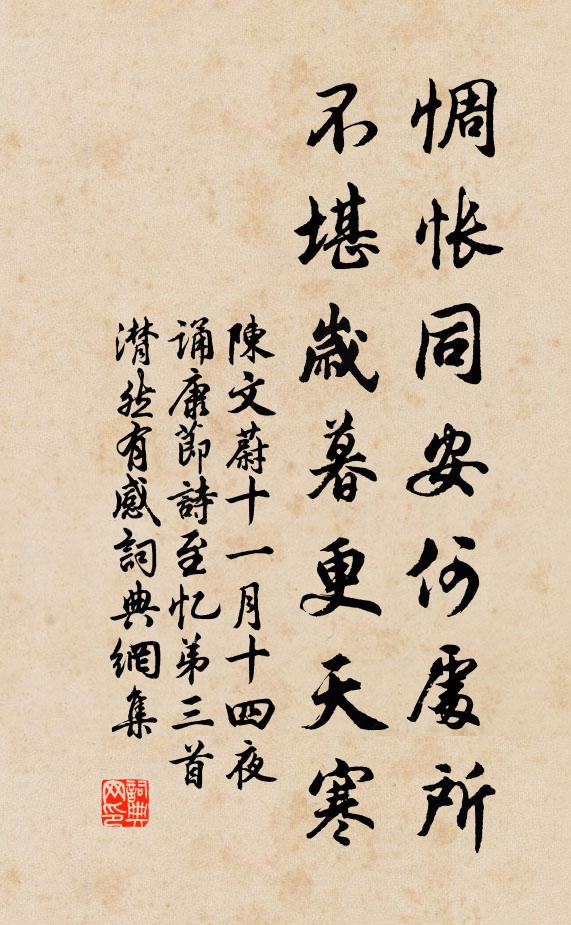 惆怅同安何處所
不堪歲暮更天寒
陳文蔚十一月十四夜
誦康節詩至忆弟三首
潸然有感詞典網集
詞典網印